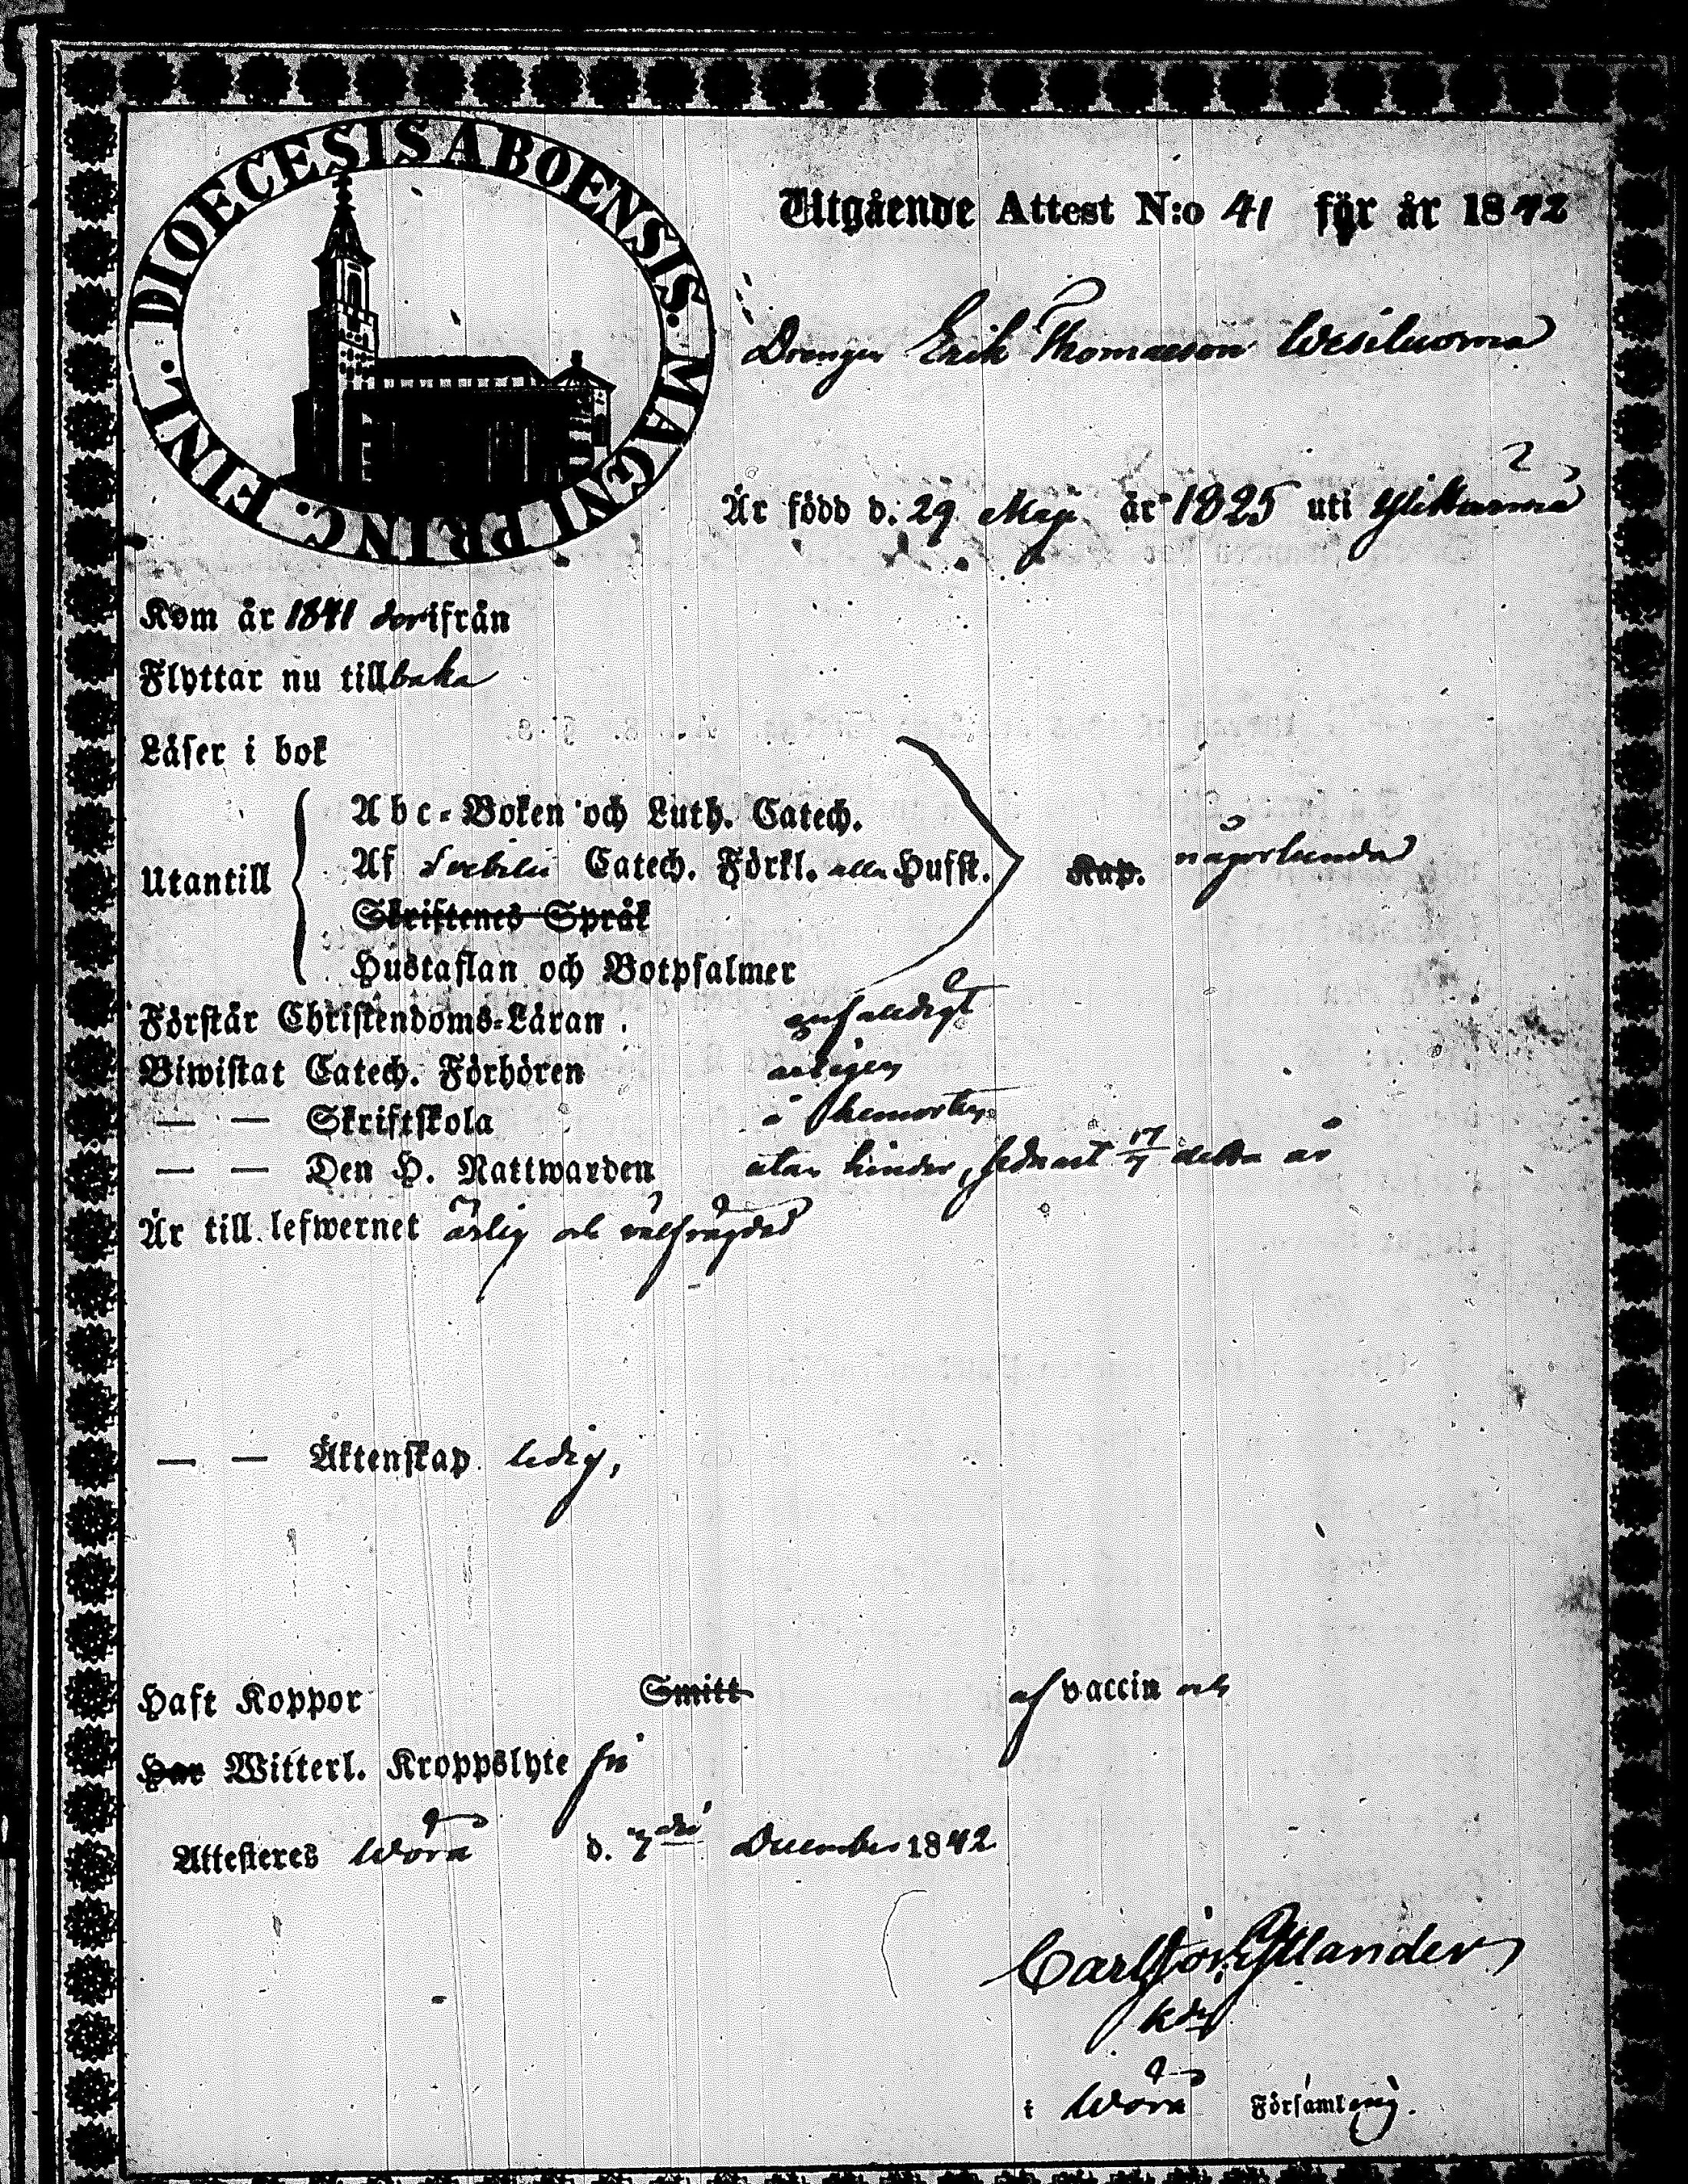 DIOECESIS ABOENSIS. MAGNI PRINC. FINL.
Utgående Attest N:o 41 för år 1842
Drengen Erik Thomasson Wesiluoma
Är född d. 29 Maji år 1825 uti Ylistarå
Kom år 1841 derifrån
Flyttar nu tillbaka
Läser i bok
Abc-Boken och Luth. Catech.
Utantill Af Svebilii Catech. Förkl. alla Hufst. Kap. någorlunda
Skriftenes Språk
Hustaflan och Botpsalmer
Förstår Christendoms-Läran enfaldigt
Biwistat Catech. Förhören årligen
— — Skriftskola i hemorten
— — Den H. Nattwarden utan hinder, sednast 17/7 detta år
Är till lefwernet ärlig och välfrägdad
— — Äktenskap ledig,
Haft Koppor Smitt af vaccin och
Har Witterl. Kroppslyte fri
Attesteras Wörå d. 7 December 1842
Carl Joh. Yllander
i Wörå Församling.